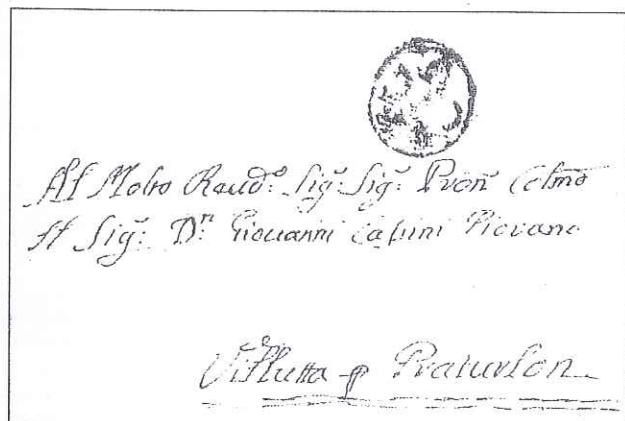 Al Molto Raud.º Sig.ʳ Sig.ʳ Pron Colmo
Il Sig.ʳ D.ⁿ Giouanni Cassini Piovano
Villutta p Praturlon